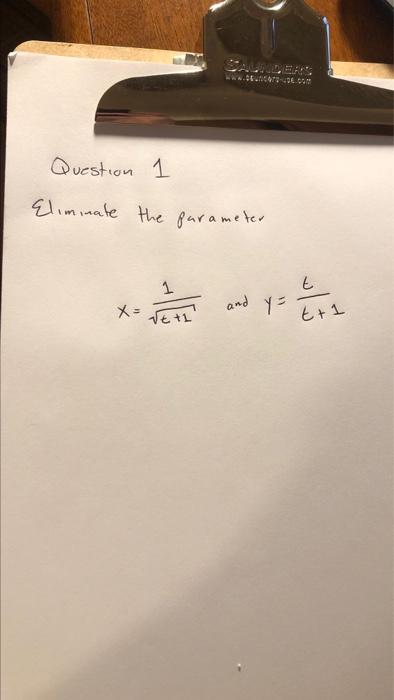 SAUNDERS
www.saunders-usa.com
Question 1
Eliminate the parameter
x = 1/√(t+1) and y = t/(t+1)